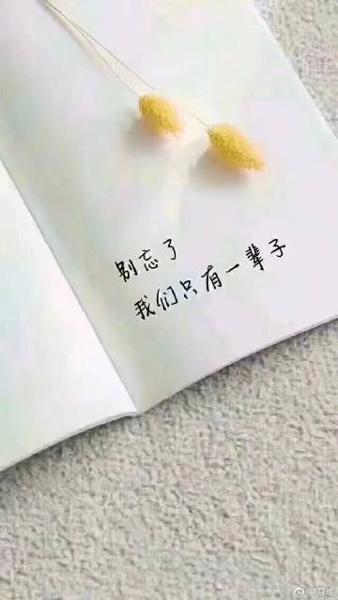 别忘了
我们只有一辈子